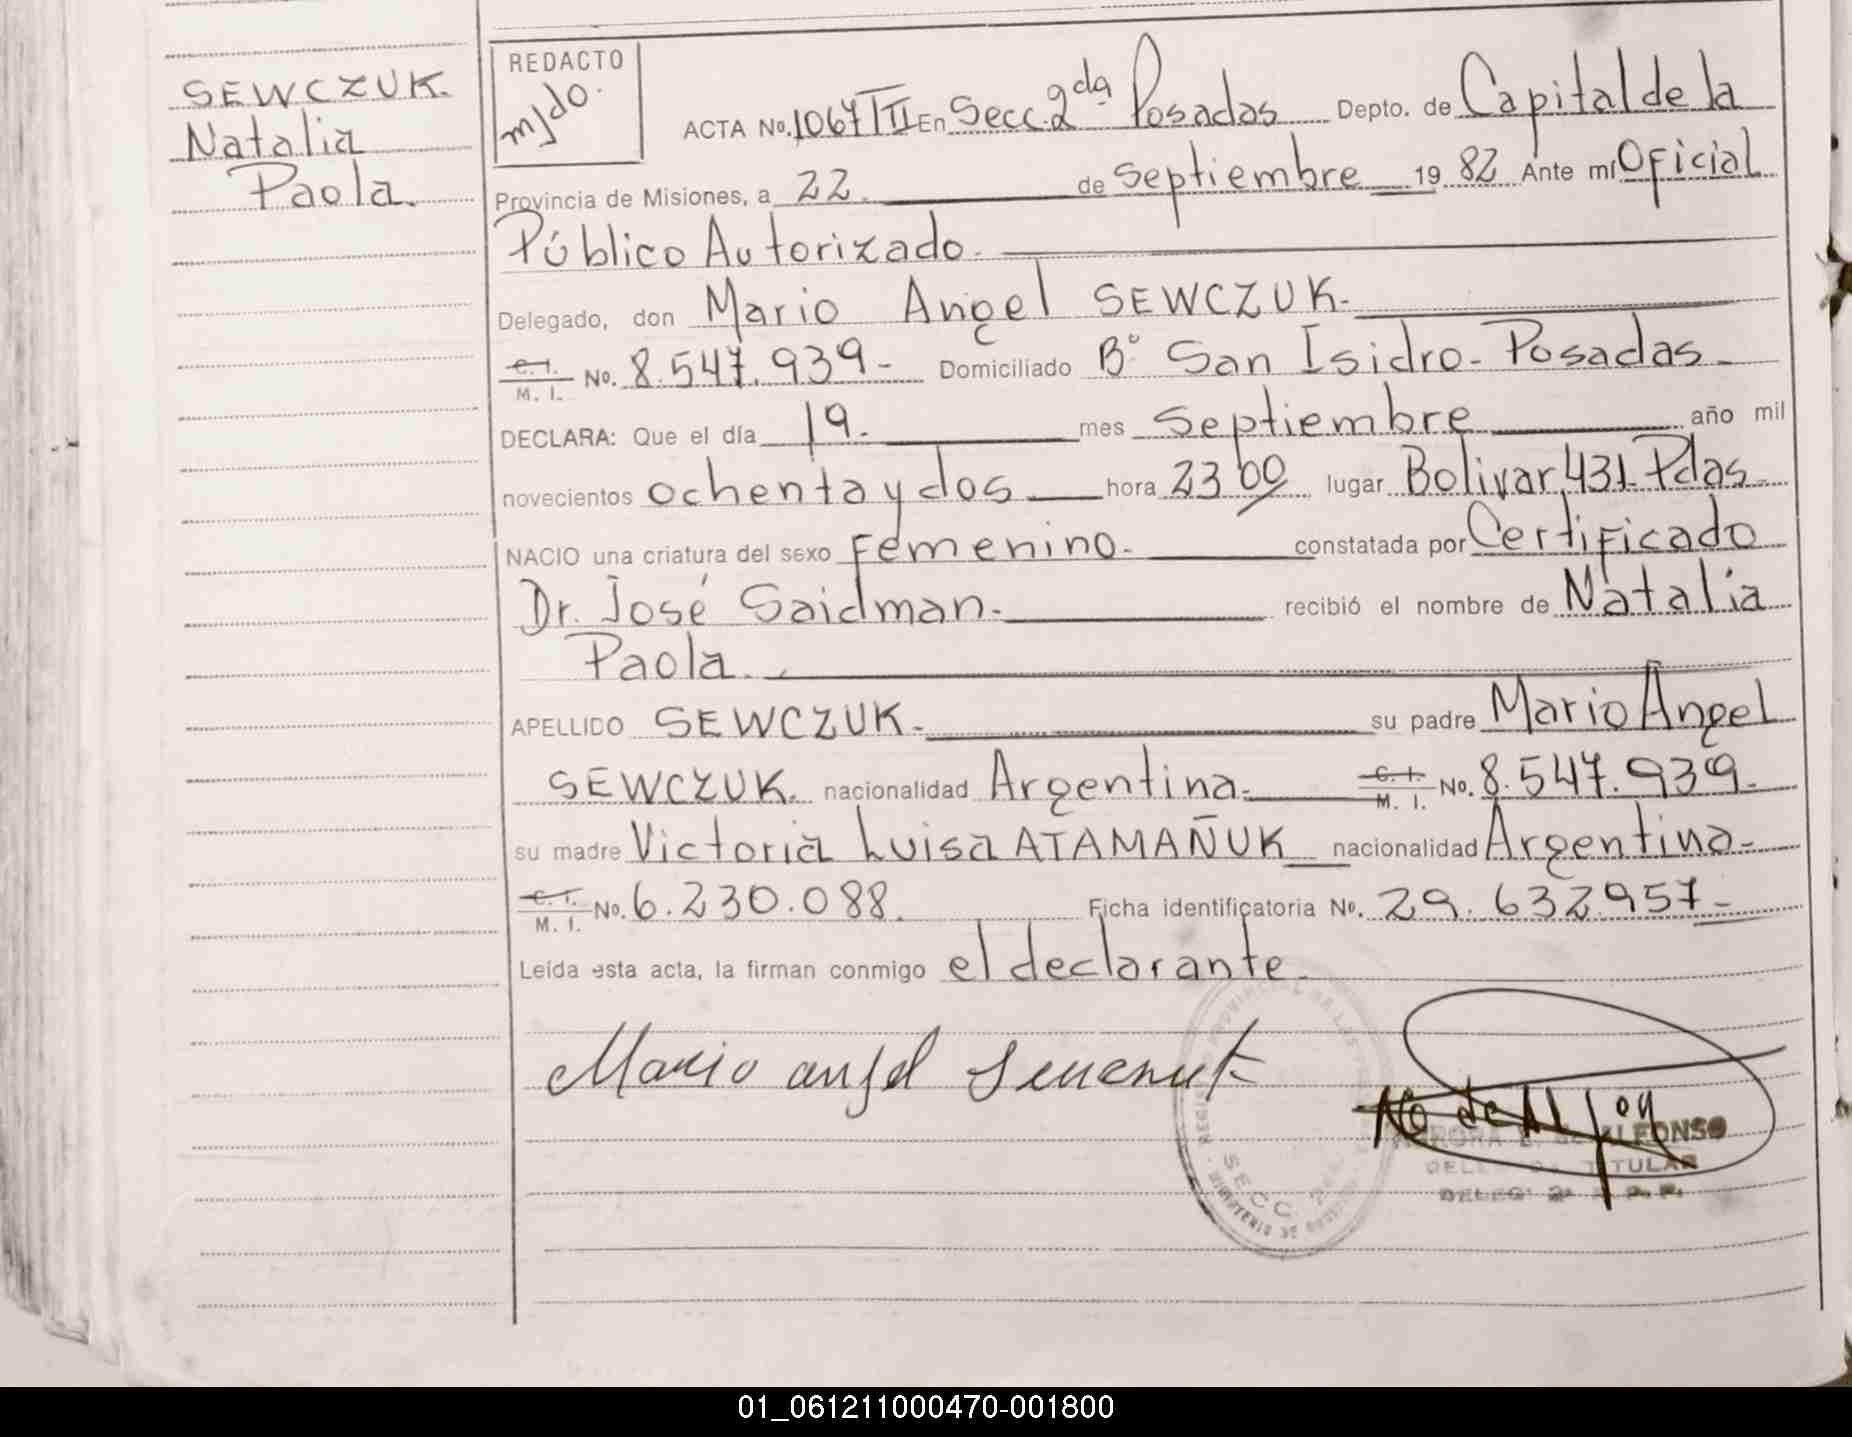 SEWCZUK.
Natalia
Paola.
REDACTO
mjdo.
ACTA No. 1067 TII En Secc. 2da Posadas Depto. de Capital de la
Provincia de Misiones, a 22. de Septiembre 19 82 Ante mí Oficial
Público Autorizado.
Delegado, don Mario Angel SEWCZUK.
C. I.
M. I. No. 8.547.939- Domiciliado B° San Isidro- Posadas-
DECLARA: Que el día 19. mes Septiembre año mil
novecientos ochenta y dos hora 23 00 lugar Bolivar 431-Pdas-
NACIO una criatura del sexo Femenino. constatada por Certificado
Dr. José Saidman. recibió el nombre de Natalia
Paola.
APELLIDO SEWCZUK. su padre Mario Angel
SEWCZUK. nacionalidad Argentina. C. I. M. I. No. 8.547.939.
su madre Victoria Luisa ATAMAÑUK nacionalidad Argentina-
C. I.
M. I. No. 6.230.088. Ficha identificatoria No. 29.632.957-
Leída esta acta, la firman conmigo el declarante.
Mario angel Sewczuk
ALFONSO
TITULAR
SECC. 2da.
01_061211000470-001800